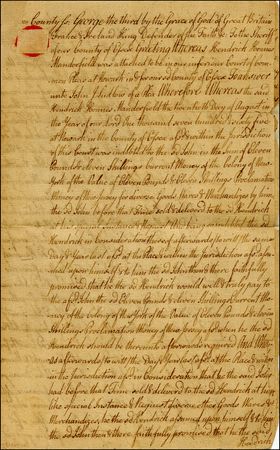 County ss. George the third by the Grace of God of Great Britain
France & Ireland King Defender of the Faith &c To the Sheriff
of our County of Essex Greeting Whereas Hendrick
was attached to be in our inferior Court of common
Pleas at Newark in & for our County of Essex to answer
unto John of a plea &c Wherefore Whereas the said
Hendrick the twentieth Day of August in
the Year of our Lord one thousand seven hundred & sixty five
at Newark in the County of Essex afsd & within the Jurisdiction
of this Court was indebted to the sd John in the Sum of Eleven
Pounds & eleven Shillings Current Money of the Colony of New
York of the Value of Eleven Pounds & Eleven Shillings Proclamation
Money of New Jersey for diverse Goods Wares & Merchandizes by him
the sd John before that Time sold & delivered to the sd Hendrick
at his special Instance & Request & being so indebted the sd
Hendrick in Consideration thereof afterwards to wit the same
Day & Year last afsd at the Place & within the Jurisdiction afsd as
sumed upon himself & to him the sd John then & there faithfully
promised that he the sd Hendrick would well & truly pay to
the afsd John the sd Eleven Pounds & eleven Shillings Current Mo
ney of the Colony of New York of the Value of Eleven Pounds & eleven
Shillings Proclamation Money of New Jersey afsd when he the sd
Hendrick should be thereunto afterwards required And Where
as afterwards to wit the Day & Year last afsd at the Place & within
the Jurisdiction afsd in Consideration that he the sd John
had before that Time sold & delivered to the sd Hendrick at the
like special Instance & Request diverse other Goods Wares &
Merchandizes he the sd Hendrick assumed upon himself & to him
the sd John then & there faithfully promised that he the said
Hendrick